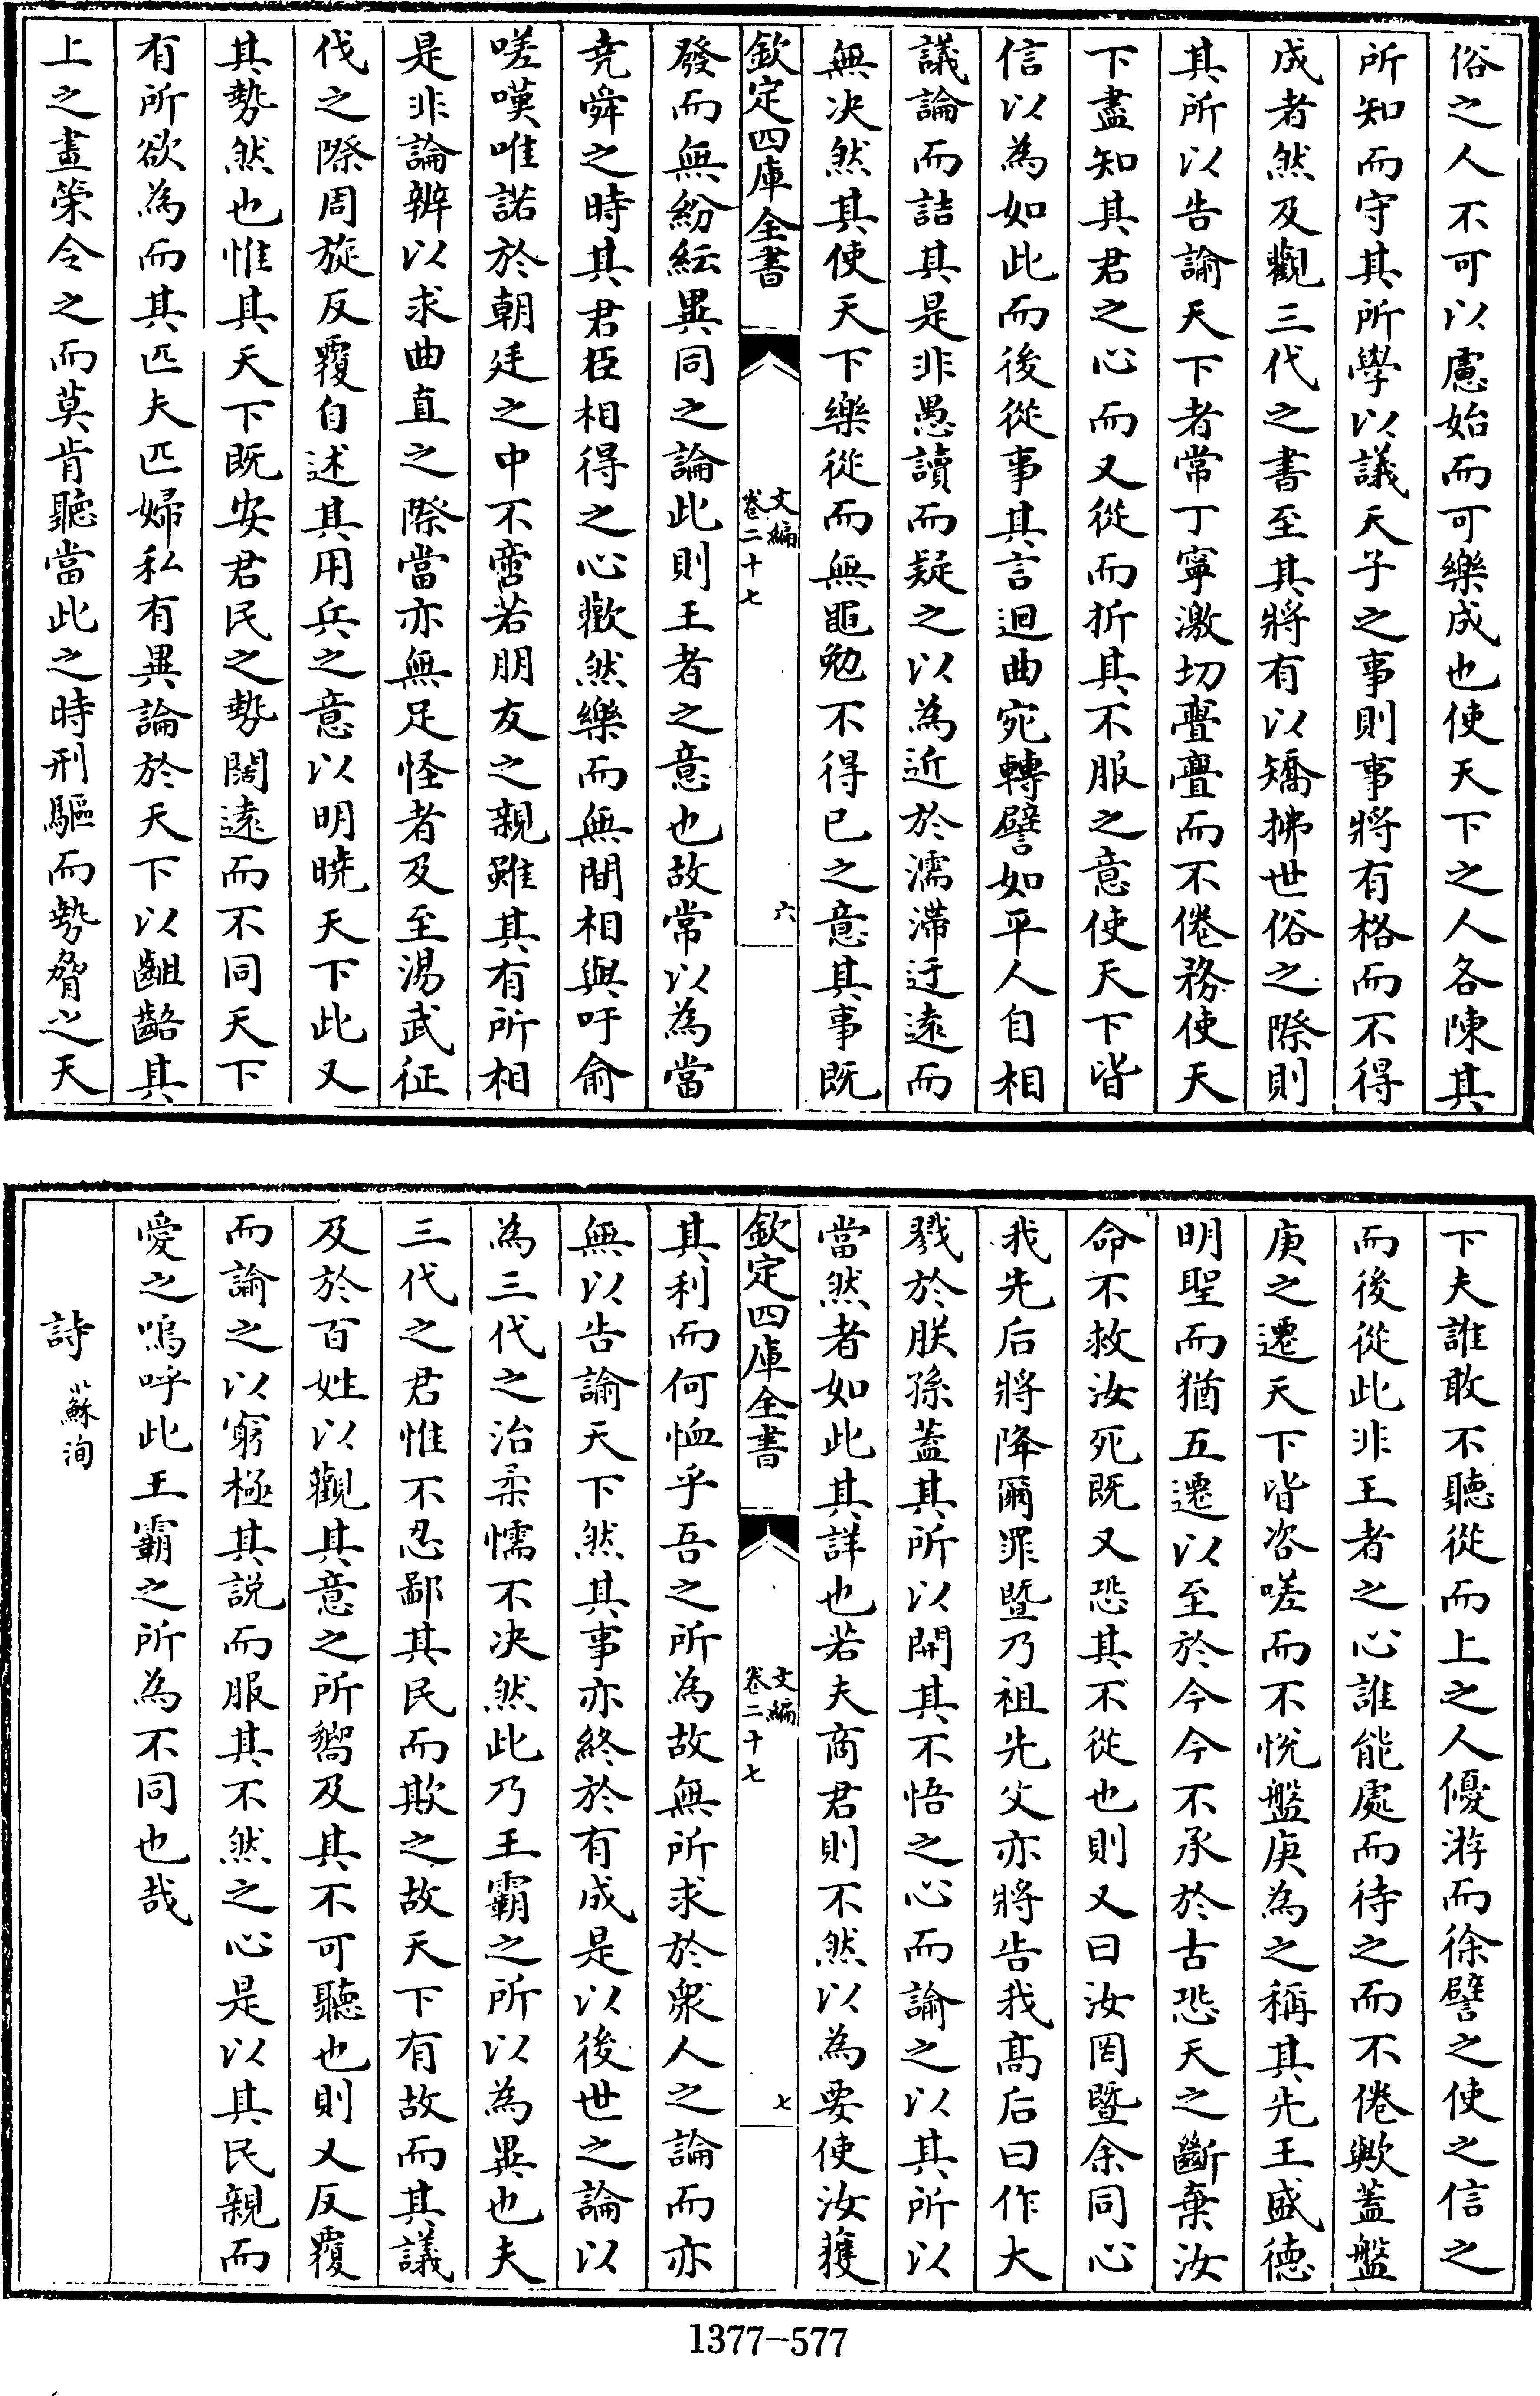 俗之人不可以慮始而可樂成也使天下之人各陳其
所知而守其所學以議天子之事則事將有格而不得
成者然及觀三代之書至其將有以矯拂世俗之際則
其所以告諭天下者常丁寧激切亹亹而不倦務使天
下盡知其君之心而又從而折其不服之意使天下皆
信以為如此而後從事其言迴曲宛轉譬如平人自相
議論而詰其是非愚讀而疑之以為近於濡滯迂遠而
無决然其使天下樂從而無黽勉不得已之意其事既
欽定四庫全書
文編
卷二十七
六
發而無紛紜異同之論此則王者之意也故常以為當
堯舜之時其君臣相得之心歡然樂而無間相與吁俞
嗟嘆唯諾於朝廷之中不啻若朋友之親雖其有所相
是非論辨以求曲直之際當亦無足怪者及至湯武征
伐之際周旋反覆自述其用兵之意以明曉天下此又
其勢然也惟其天下既安君民之勢闊遠而不同天下
有所欲為而其匹夫匹婦私有異論於天下以齟齬其
上之畫策令之而莫肯聽當此之時刑驅而勢脅之天
下夫誰敢不聽從而上之人優游而徐譬之使之信之
而後從此非王者之心誰能處而待之而不倦歟蓋盤
庚之遷天下皆咨嗟而不悅盤庚為之稱其先王盛德
明聖而猶五遷以至於今今不承於古恐天之斷棄汝
命不救汝死既又恐其不從也則又曰汝罔暨余同心
我先后將降爾罪暨乃祖先父亦將告我高后曰作大
戮於朕孫蓋其所以開其不悟之心而諭之以其所以
當然者如此其詳也若夫商君則不然以為要使汝獲
欽定四庫全書
文編
卷二十七
七
其利而何恤乎吾之所為故無所求於衆人之論而亦
無以告諭天下然其事亦終於有成是以後世之論以
為三代之治柔懦不决然此乃王霸之所以為異也夫
三代之君惟不忍鄙其民而欺之故天下有故而其議
及於百姓以觀其意之所嚮及其不可聽也則又反覆
而諭之以窮極其説而服其不然之心是以其民親而
愛之嗚呼此王霸之所為不同也哉
詩 蘇洵
1377-577